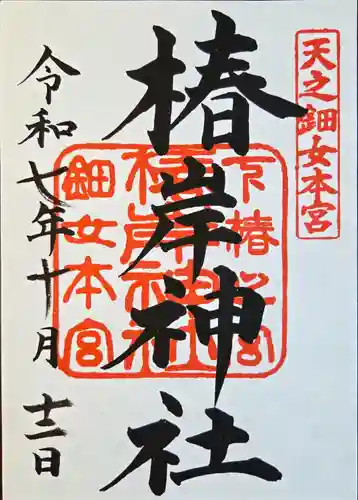 天之鈿女本宮
椿岸神社
下椿
宮
椿岸神社
鈿女本宮
令和七年十月十二日